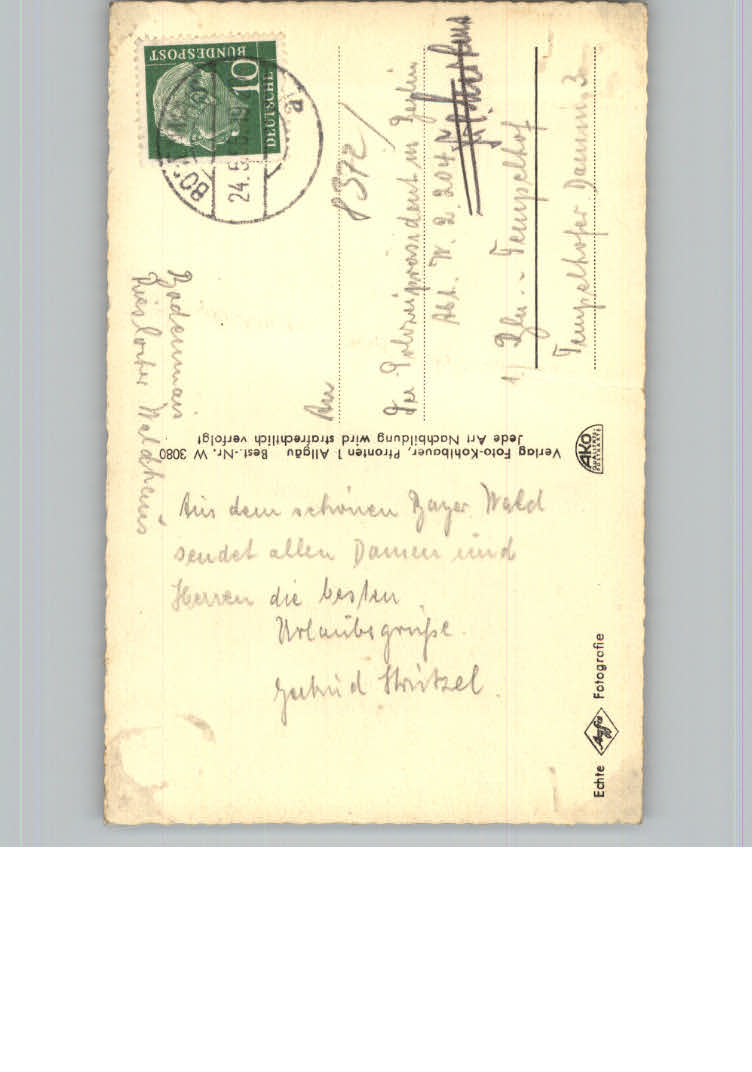 Bodenmais
Waldhaus
Aus dem schönen Bayer. Wald
sendet allen Damen und
Herren die besten
Urlaubsgrüße.
Gertrud
Verlag Foto-Kohlbauer, Pfronten 1 Allgäu Best.-Nr. W 3080
Jede Art Nachbildung wird strafrechtlich verfolgt
AKO
Echte Agfa Fotografie
DEUTSCHE
BUNDESPOST
10
24.5.
a
8372/
An
Der Polizeipräsident in Berlin
Abt. W. 2. 204
1) Bln.-Tempelhof
Tempelhofer Damm 3